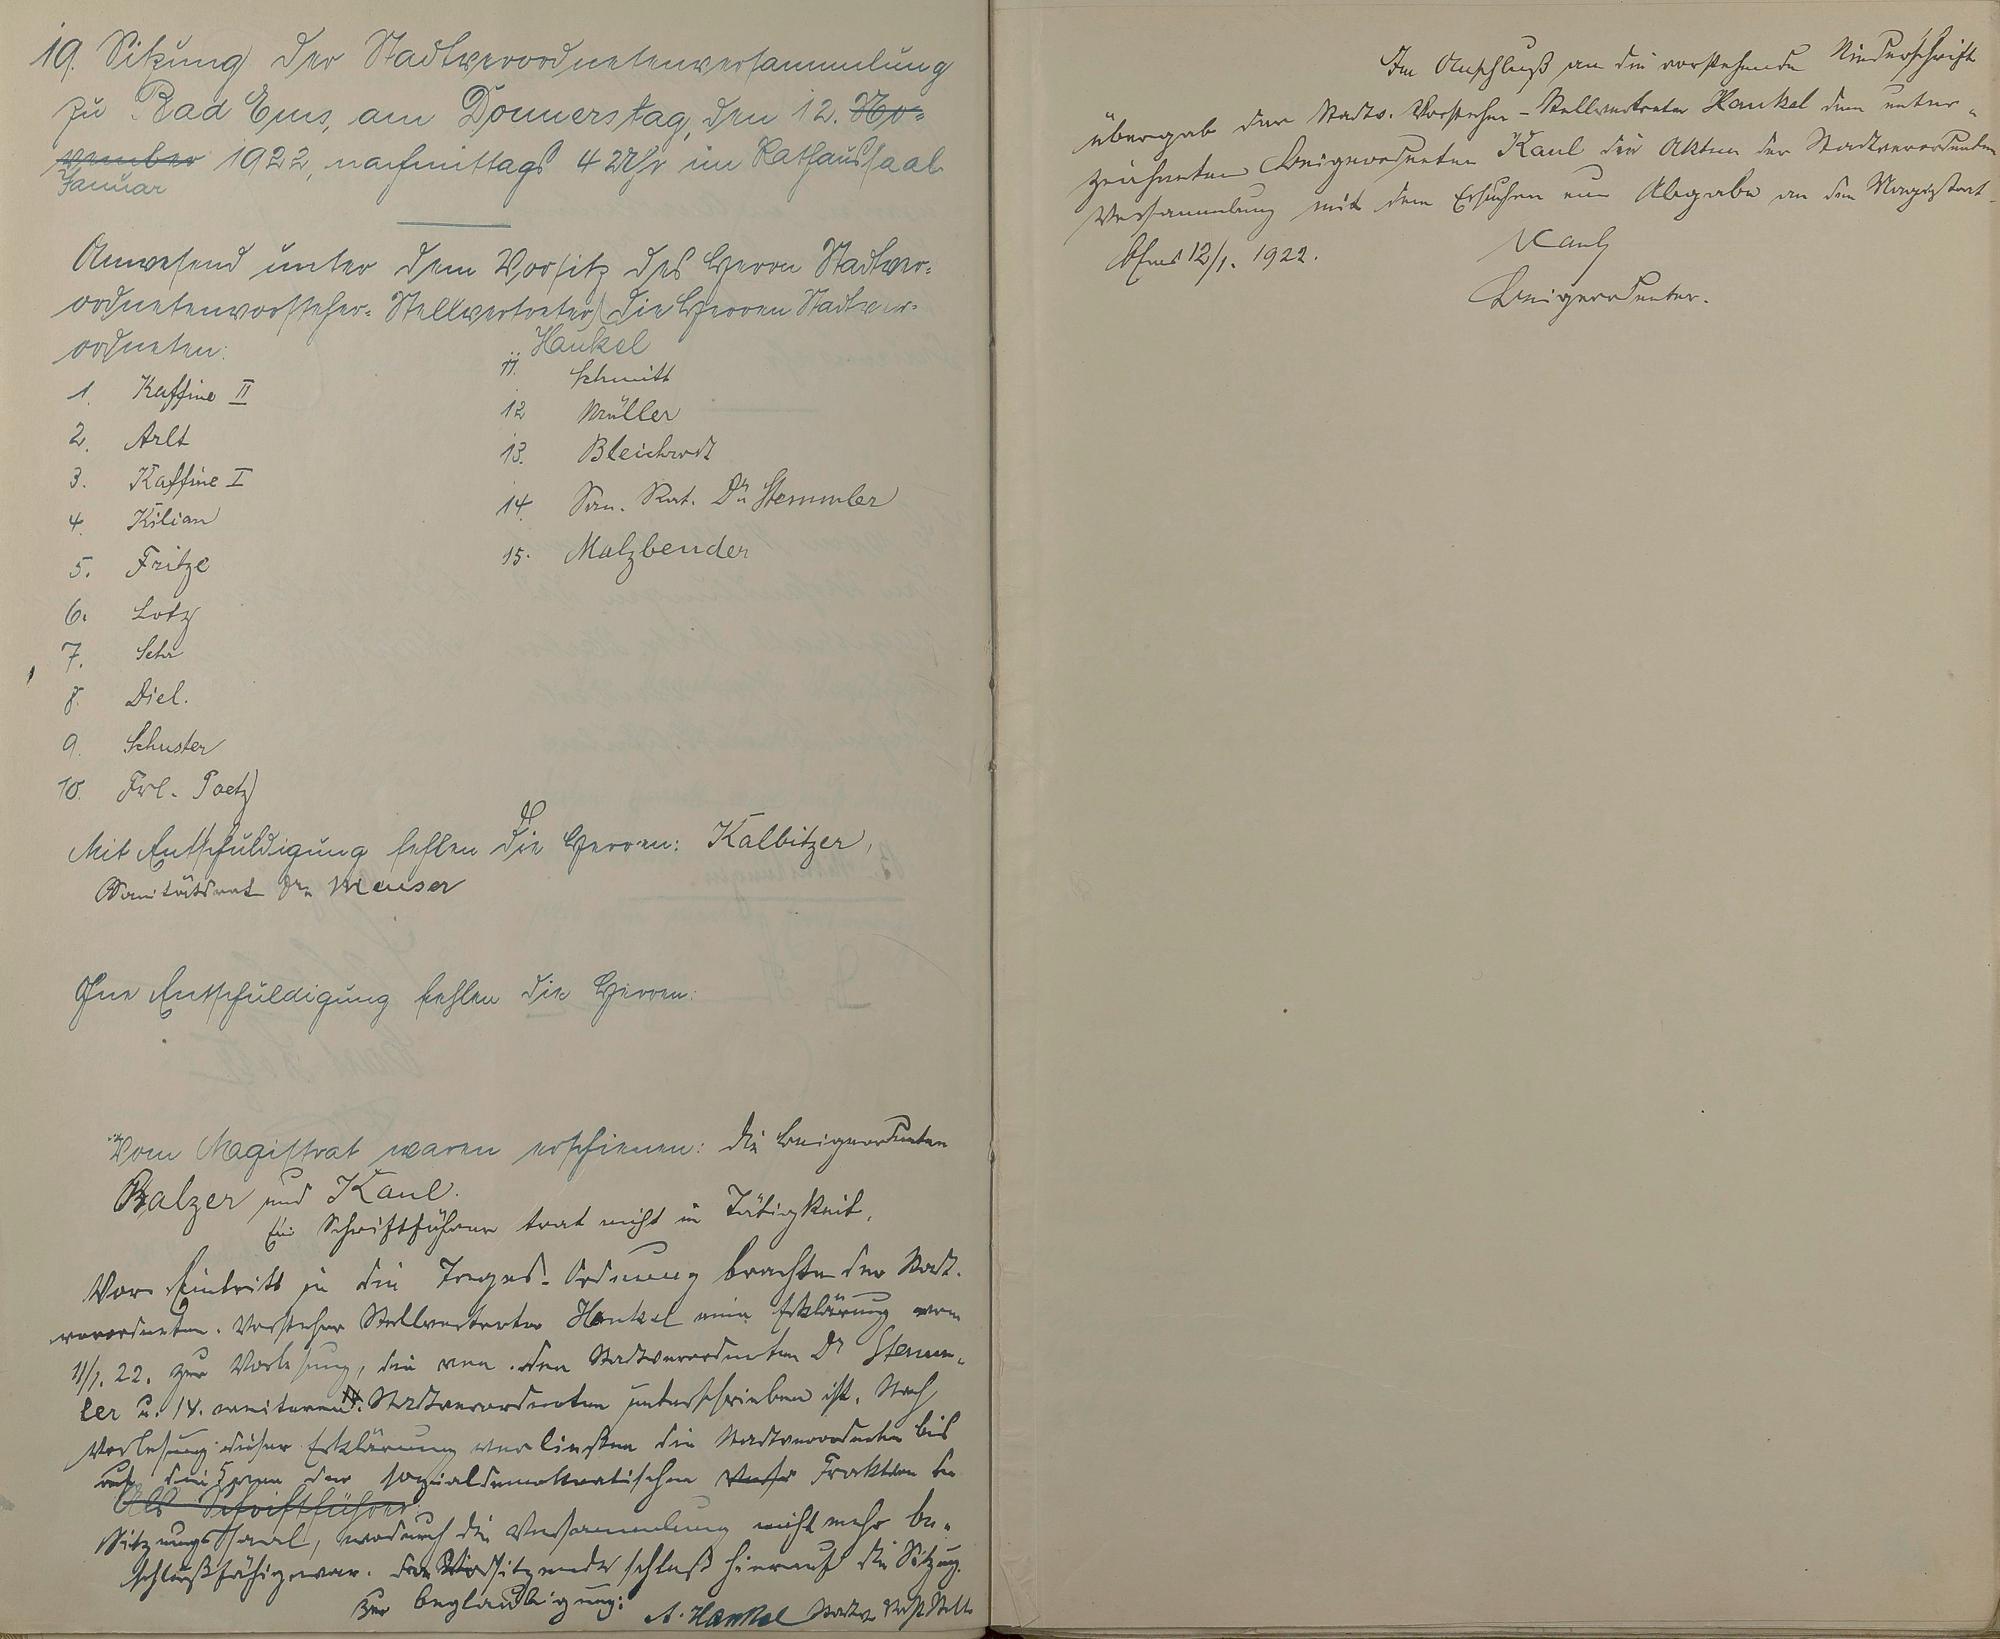 19. Sitzung der Stadtverordnetenversammlung
zu Bad Ems, am Donnerstag, den 12. No-
vember 1922, nachmittags 4 Uhr im Rathaussaal.
Januar
Anwesend unter dem Vorsitz des Herrn Stadtver-
ordnetenvorsteher-Stellvertreter die Herren Stadtver-
Hankel
ordneten:
1. Kaffine II
2. Arlt
3. Kaffine I
4. Kilian
5. Fritze
6. Lotz
7. Sehr
8. Diel.
9. Schuster
10. Frl. Paetz
11. Schmitt
12 Müller
13. Bleichrodt
14. San. Rat. Dr. Stemmler
15. Malzbender
Mit Entschuldigung fehlen die Herren: Kalbitzer,
Sanitätsrat Dr. Meuser
Ohne Entschuldigung fehlen die Herren:
Vom Magistrat waren erschienen: die Beigeordneten
Balzer und Kaul.
Ein Schriftführer trat nicht in Tätigkeit.
Vor Eintritt in die Tages-Ordnung brachte der Stadt-
verordneten-Vorsteher Stellvertreter Hankel eine Erklärung vom
11/1. 22. zur Vorlesung, die von den Stadtverordneten Dr Stemm-
ler u. 14. weiteren Stadtverordneten unterschrieben ist. Nach
Vorlesung dieser Erklärung verließen die Stadtverordneten bis
auf die der sozialdemokratischen Fraktion den
Als Schriftführer
Sitzungssaal, wodurch die Versammlung nicht mehr be-
schlußfähig war. Der Vorsitzende schloß hierauf die Sitzung.
Zur Beglaubigung: A. Hankel Stadtv. Vorst. Stellv.
Im Anschluß an die vorstehende Niederschrift
übergab der Stadtv. Vorsteher-Stellvertreter Hankel dem unter-
zeichneten Beigeordneten Kaul die Akten der Stadtverordneten
Versammlung mit dem Ersuchen um Abgabe an den Magistrat.
Ems 12/1. 1922.
Kaul
Beigeordneter.